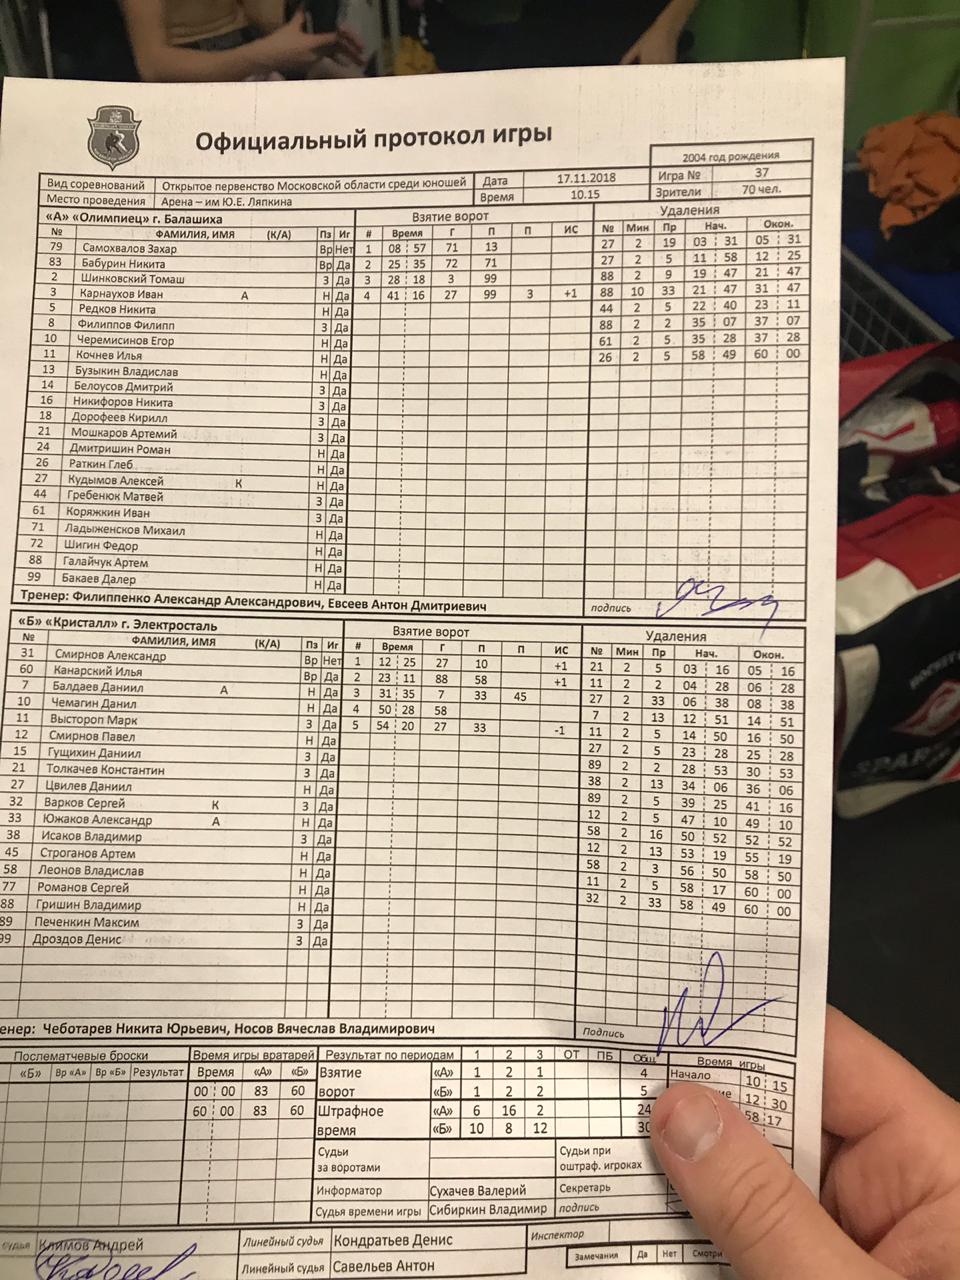 Официальный протокол игры
2004 год рождения
Вид соревнований Открытое первенство Московской области среди юношей Дата 17.11.2018 Игра № 37
Место проведения Арена – им Ю.Е. Ляпкина Время 10.15 Зрители 70 чел.
«А» «Олимпиец» г. Балашиха Взятие ворот Удаления
№ ФАМИЛИЯ, ИМЯ (К/А) Пз Иг # Время Г П П ИС № Мин Пр Нач. Окон.
79 Самохвалов Захар Вр Нет 1 08 57 71 13 27 2 19 03 31 05 31
83 Бабурин Никита Вр Да 2 25 35 72 71 27 2 5 11 58 12 25
2 Шинковский Томаш З Да 3 28 18 3 99 88 2 9 19 47 21 47
3 Карнаухов Иван А Н Да 4 41 16 27 99 3 +1 88 10 33 21 47 31 47
5 Редков Никита Н Да 44 2 5 22 40 23 11
8 Филиппов Филипп З Да 88 2 2 35 07 37 07
10 Черемисинов Егор Н Да 61 2 5 35 28 37 28
11 Кочнев Илья Н Да 26 2 5 58 49 60 00
13 Бузыкин Владислав Н Да
14 Белоусов Дмитрий З Да
16 Никифоров Никита З Да
18 Дорофеев Кирилл З Да
21 Мошкаров Артемий З Да
24 Дмитришин Роман Н Да
26 Раткин Глеб Н Да
27 Кудымов Алексей К Н Да
44 Гребенюк Матвей З Да
61 Коряжкин Иван З Да
71 Ладыженсков Михаил Н Да
72 Шигин Федор Н Да
88 Галайчук Артем Н Да
99 Бакаев Далер Н Да
Тренер: Филиппенко Александр Александрович, Евсеев Антон Дмитриевич подпись
«Б» «Кристалл» г. Электросталь Взятие ворот Удаления
№ ФАМИЛИЯ, ИМЯ (К/А) Пз Иг # Время Г П П ИС № Мин Пр Нач. Окон.
31 Смирнов Александр Вр Нет 1 12 25 27 10 +1 21 2 5 03 16 05 16
60 Канарский Илья Вр Да 2 23 11 88 58 +1 11 2 2 04 28 06 28
7 Балдаев Даниил А Н Да 3 31 35 7 33 45 27 2 33 06 38 08 38
10 Чемагин Данил Н Да 4 50 28 58 7 2 13 12 51 14 51
11 Выстороп Марк З Да 5 54 20 27 33 -1 11 2 5 14 50 16 50
12 Смирнов Павел Н Да 27 2 5 23 28 25 28
15 Гущихин Даниил З Да 89 2 2 28 53 30 53
21 Толкачев Константин З Да 38 2 13 34 06 36 06
27 Цвилев Даниил Н Да 89 2 5 39 25 41 16
32 Варков Сергей К З Да 12 2 5 47 10 49 10
33 Южаков Александр А Н Да 58 2 16 50 52 52 52
38 Исаков Владимир З Да 12 2 13 53 19 55 19
45 Строганов Артем Н Да 58 2 3 56 50 58 50
58 Леонов Владислав Н Да 11 2 5 58 17 60 00
77 Романов Сергей Н Да 32 2 33 58 49 60 00
88 Гришин Владимир Н Да
89 Печенкин Максим З Да
99 Дроздов Денис З Да
енер: Чеботарев Никита Юрьевич, Носов Вячеслав Владимирович Подпись
Послематчевые броски Время игры вратарей Результат по периодам 1 2 3 ОТ ПБ Общ. Время игры
«Б» Вр «А» Вр «Б» Результат Время «А» «Б» Взятие «А» 1 2 1 4 Начало 10 15
00 00 83 60 ворот «Б» 1 2 2 5 12 30
60 00 83 60 Штрафное «А» 6 16 2 24 58 17
время «Б» 10 8 12 30
Судьи за воротами Судьи при оштраф. игроках
Информатор Сухачев Валерий Секретарь
Судья времени игры Сибиркин Владимир подпись
судья Климов Андрей Линейный судья Кондратьев Денис Инспектор
Линейный судья Савельев Антон Замечания Да Нет Смотри